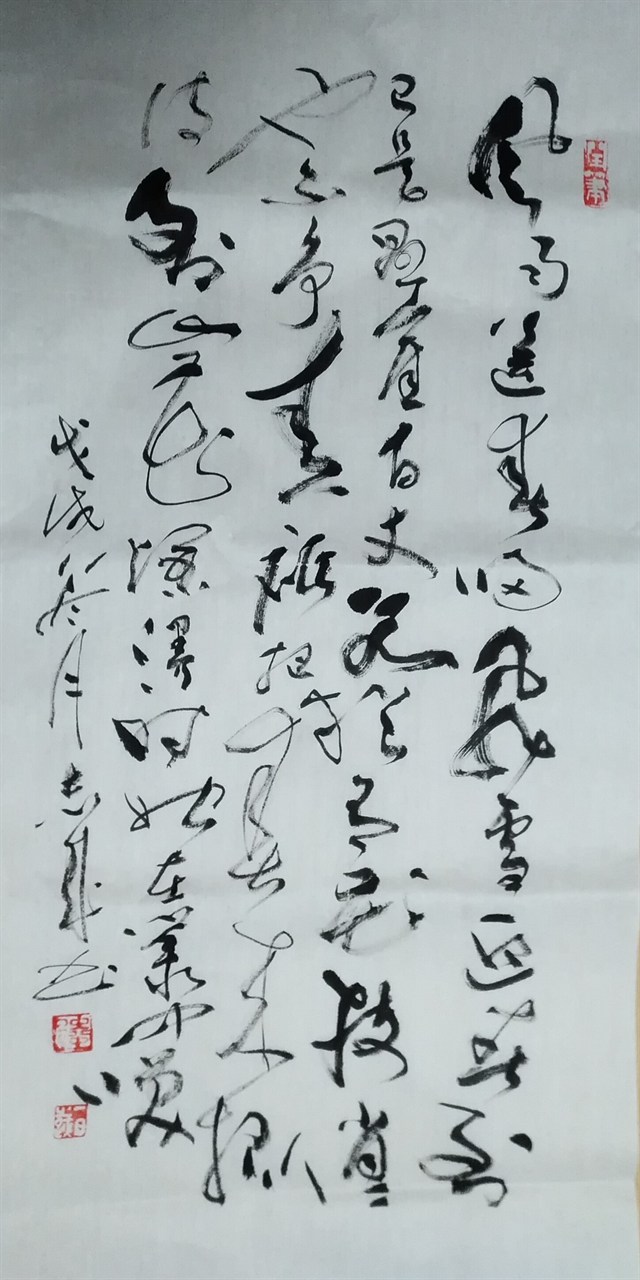 风雨送春归飞雪迎春到
已是悬崖百丈冰犹有花枝俏
也不争春只把春来报
待到山花烂漫时她在叢中笑
戊戌冬月志书